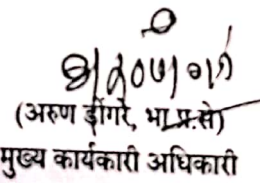 (अरुण डोंगरे, भा.प्र.से)
मुख्य कार्यकारी अधिकारी